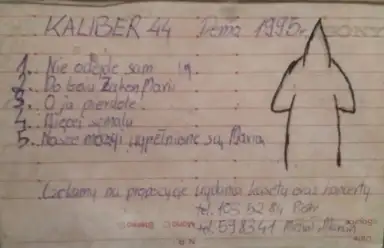 KALIBER 44 Demo 1995r.
SONY
1. Nie odejdę sam
2. Do boju Zakon Marii
3. O ja pierdolę!
4. Więcej szmalu
5. Nasze mózgi wypełnione są Marią
Czekamy na propozycje wydania kasety oraz koncerty
tel. 105 52 84 Piotr
tel. 598341 Michał Marcin
Stereo Mono
N.R.
Date